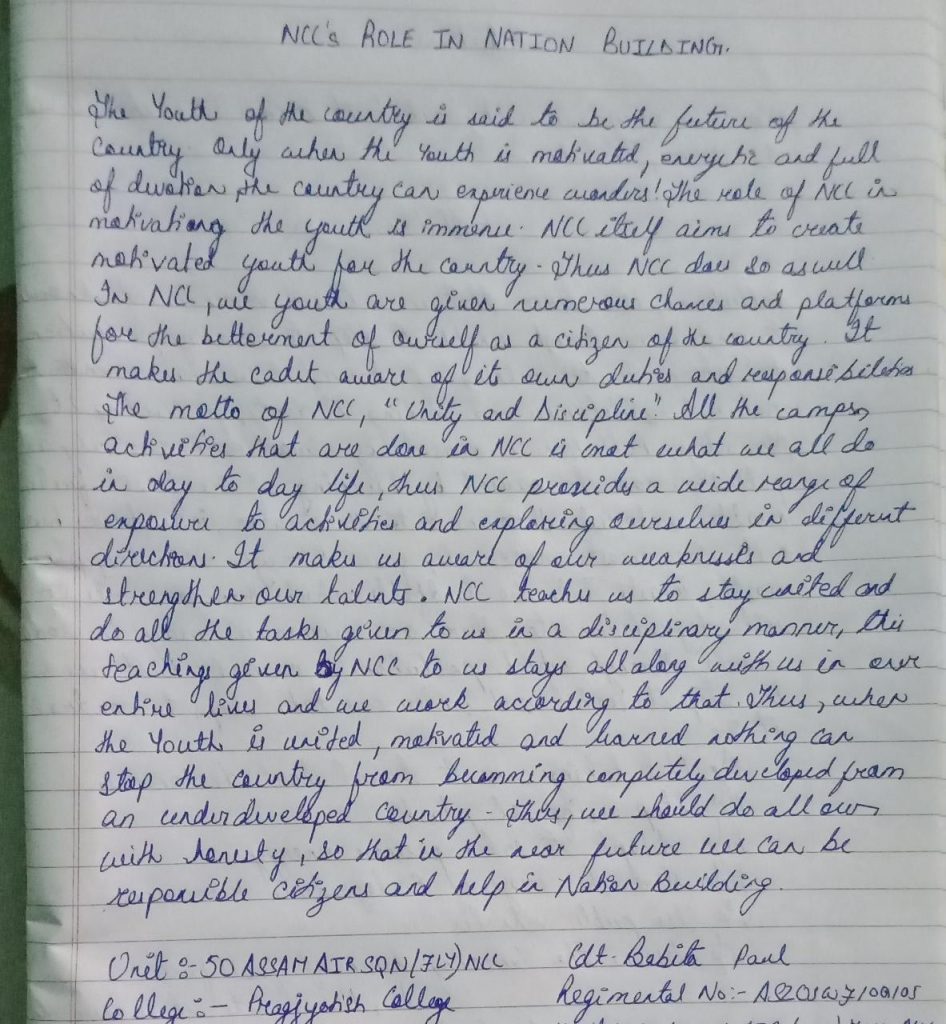 NCC's ROLE IN NATION BUILDING.
The Youth of the country is said to be the future of the
Country Only when the Youth is motivated, energetic and full
of devotion, the country can experience wonders! The role of NCC in
motivationg the youth is immense. NCC itself aims to create
motivated youth for the country. Thus NCC does so as well
In NCC, we youth are given numerous chances and platforms
for the betterment of ourself as a citizen of the country. It
makes the cadet aware of its own duties and responsibilities
The motto of NCC, "Unity and Discipline". All the camps,
activities that are done in NCC is not what we all do
in day to day life, thus NCC provides a wide range of
exposure to activities and exploring ourselves in different
directions. It makes us aware of our weaknesses and
strengthen our talents. NCC teaches us to stay united and
do all the tasks given to us in a disciplinary manner, this
teachings given by NCC to us stays all along with us in our
entire lives and we work according to that. Thus, when
the Youth is united, motivated and learned nothing can
stop the country from becomming completely developed from
an underdeveloped Country. Thus, we should do all our
with honesty, so that in the near future we can be
responsible Citizens and help in Nation Building.
Unit :- 50 ASSAM AIR SQN (FLY) NCC Cdt. Babita Paul
College :- Pragjyotish College Regimental No:-